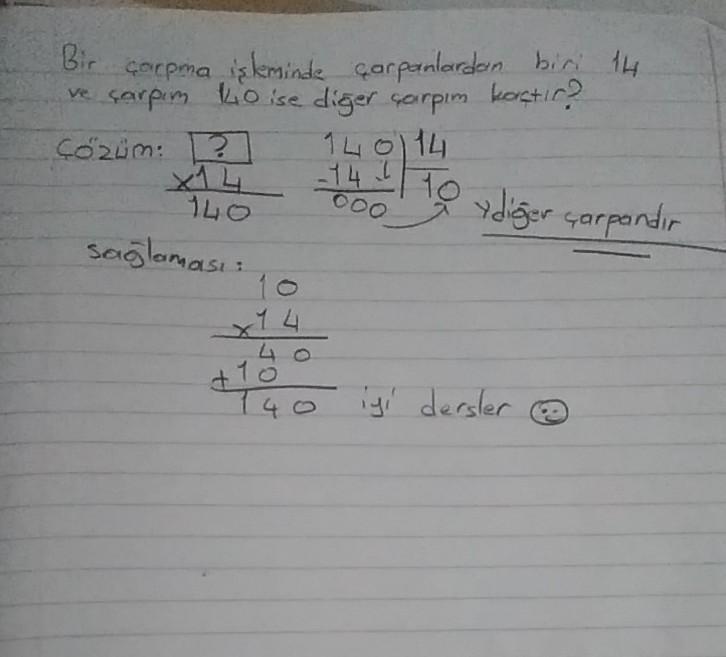 Bir çarpma işleminde çarpanlardan biri 14
ve çarpım 140 ise diğer çarpım kaçtır?
Çözüm: ? 140 14
x14 -14 10
140 000 diğer çarpandır
sağlaması:
10
x14
40
+10
140 iyi dersler